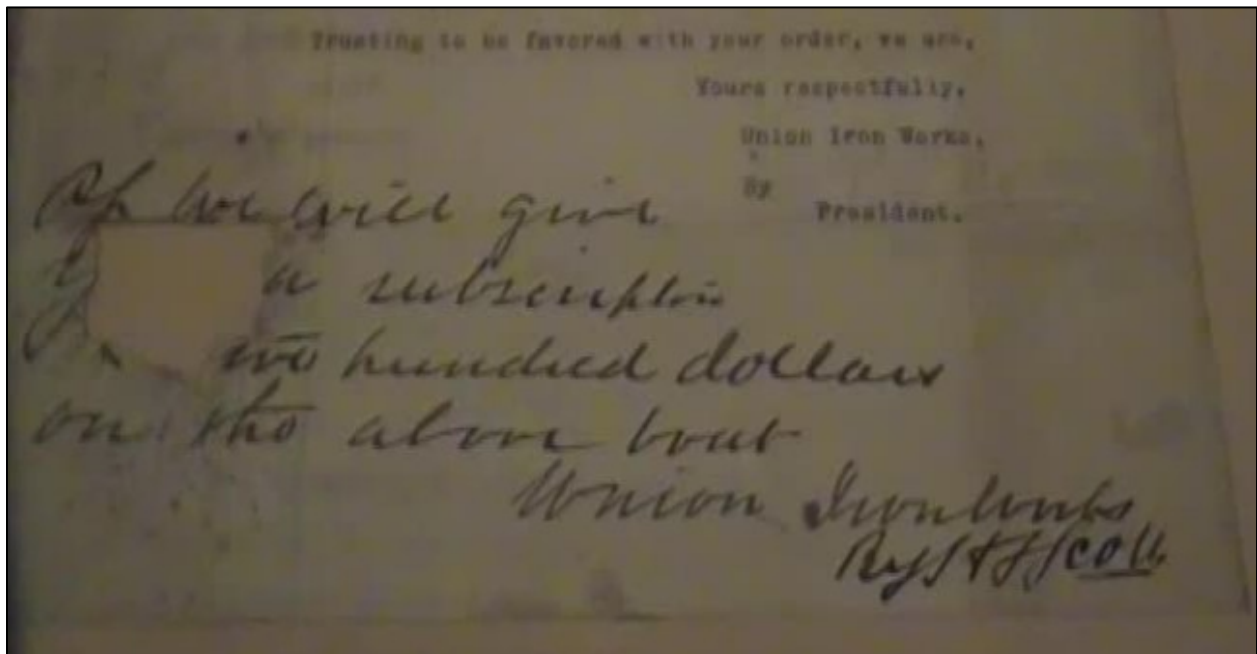 Trusting to be favored with your order, we are,
Yours respectfully,
Union Iron Works,
By
President.
We will give
a subscription
two hundred dollars
on the above boat
Union Iron Works
By Scott